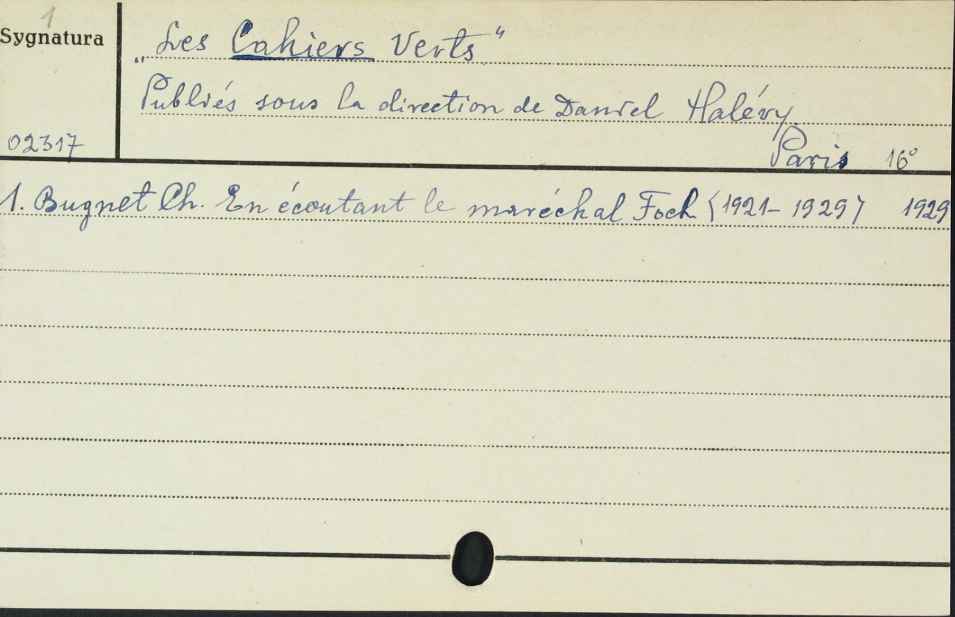 1
Sygnatura
„Les Cahiers Verts"
Publiés sous la direction de Daniel Halévy
02317
Paris 16°
1. Bugnet Ch. En écoutant le maréchal Foch (1921-1929) 1929